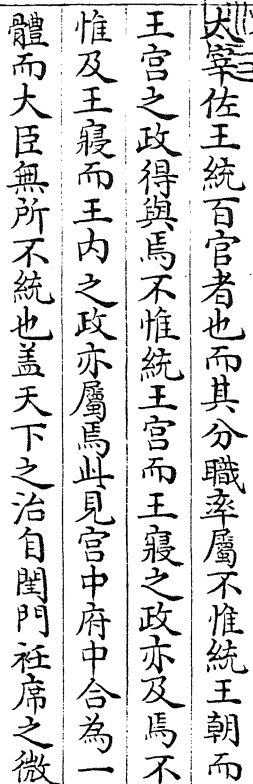 大宰佐王統百官者也而其分職率屬不惟統王朝而
王宫之政得與焉不惟統王宫而王寢之政亦及焉不
惟及王寢而王内之政亦屬焉此見宫中府中合為一
體而大臣無所不統也盖天下之治自閨門衽席之微